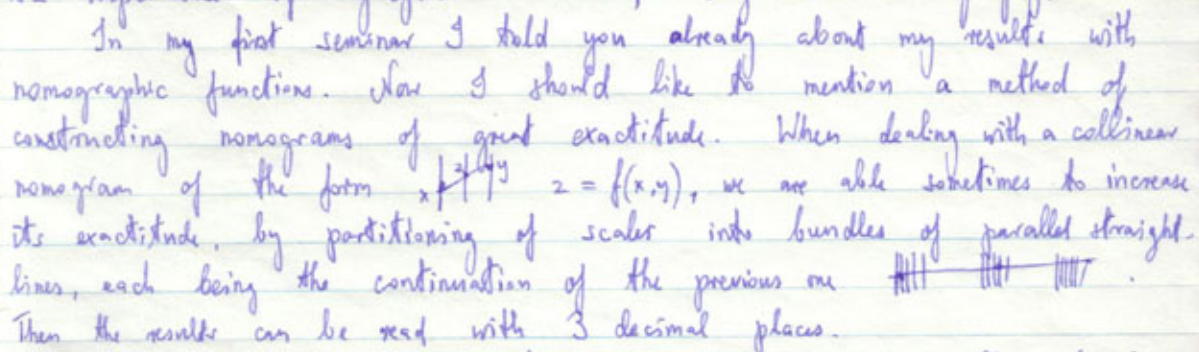 In my first seminar I told you already about my results with
nomographic functions. Now I should like to mention a method of
constructing nomograms of great exactitude. When dealing with a collinear
nomogram of the form x z y z = f(x,y), we are able sometimes to increase
its exactitude, by partitioning of scales into bundles of parallel straight-
lines, each being the continuation of the previous one .
Then the results can be read with 3 decimal places.